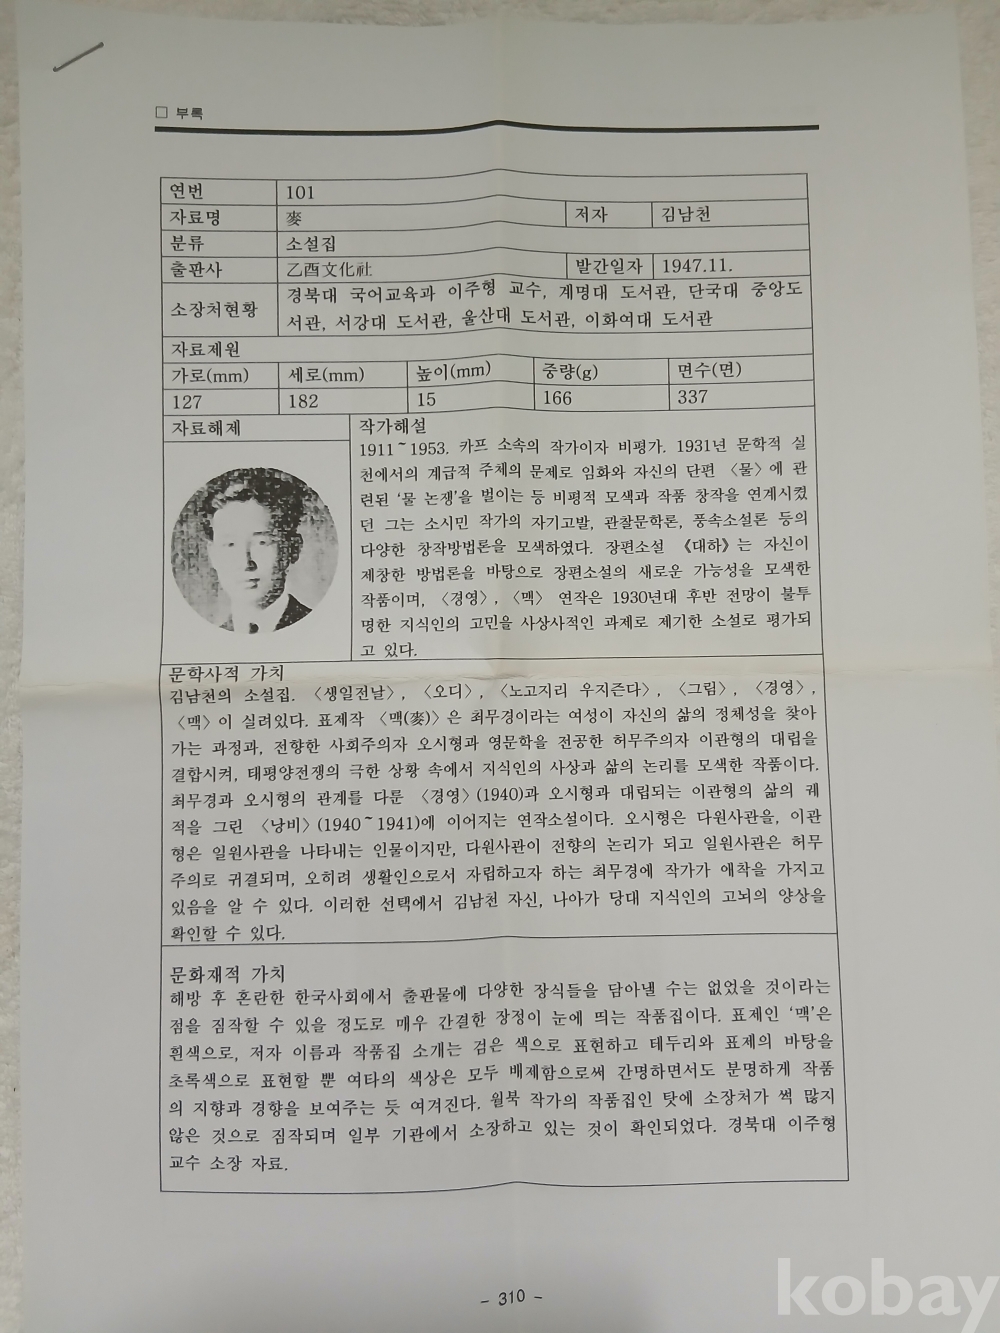 □ 부록
연번 101
자료명 麥 저자 김남천
분류 소설집
출판사 乙酉文化社 발간일자 1947.11.
소장처현황 경북대 국어교육과 이주형 교수, 계명대 도서관, 단국대 중앙도
서관, 서강대 도서관, 울산대 도서관, 이화여대 도서관
자료제원
가로(mm) 세로(mm) 높이(mm) 중량(g) 면수(면)
127 182 15 166 337
자료해제
작가해설
1911~1953. 카프 소속의 작가이자 비평가. 1931년 문학적 실
천에서의 계급적 주체의 문제로 임화와 자신의 단편 〈물〉에 관
련된 '물 논쟁'을 벌이는 등 비평적 모색과 작품 창작을 연계시켰
던 그는 소시민 작가의 자기고발, 관찰문학론, 풍속소설론 등의
다양한 창작방법론을 모색하였다. 장편소설 《대하》는 자신이
제창한 방법론을 바탕으로 장편소설의 새로운 가능성을 모색한
작품이며, 〈경영〉, 〈맥〉 연작은 1930년대 후반 전망이 불투
명한 지식인의 고민을 사상사적인 과제로 제기한 소설로 평가되
고 있다.
문학사적 가치
김남천의 소설집. 〈생일전날〉, 〈오디〉, 〈노고지리 우지즌다〉, 〈그림〉, 〈경영〉,
〈맥〉이 실려있다. 표제작 〈맥(麥)〉은 최무경이라는 여성이 자신의 삶의 정체성을 찾아
가는 과정과, 전향한 사회주의자 오시형과 영문학을 전공한 허무주의자 이관형의 대립을
결합시켜, 태평양전쟁의 극한 상황 속에서 지식인의 사상과 삶의 논리를 모색한 작품이다.
최무경과 오시형의 관계를 다룬 〈경영〉(1940)과 오시형과 대립되는 이관형의 삶의 궤
적을 그린 〈낭비〉(1940~1941)에 이어지는 연작소설이다. 오시형은 다원사관을, 이관
형은 일원사관을 나타내는 인물이지만, 다원사관이 전향의 논리가 되고 일원사관은 허무
주의로 귀결되며, 오히려 생활인으로서 자립하고자 하는 최무경에 작가가 애착을 가지고
있음을 알 수 있다. 이러한 선택에서 김남천 자신, 나아가 당대 지식인의 고뇌의 양상을
확인할 수 있다.
문화재적 가치
해방 후 혼란한 한국사회에서 출판물에 다양한 장식들을 담아낼 수는 없었을 것이라는
점을 짐작할 수 있을 정도로 매우 간결한 장정이 눈에 띄는 작품집이다. 표제인 '맥'은
흰색으로, 저자 이름과 작품집 소개는 검은 색으로 표현하고 테두리와 표제의 바탕을
초록색으로 표현할 뿐 여타의 색상은 모두 배제함으로써 간명하면서도 분명하게 작품
의 지향과 경향을 보여주는 듯 여겨진다. 월북 작가의 작품집인 탓에 소장처가 썩 많지
않은 것으로 짐작되며 일부 기관에서 소장하고 있는 것이 확인되었다. 경북대 이주형
교수 소장 자료.
- 310 -
kobay